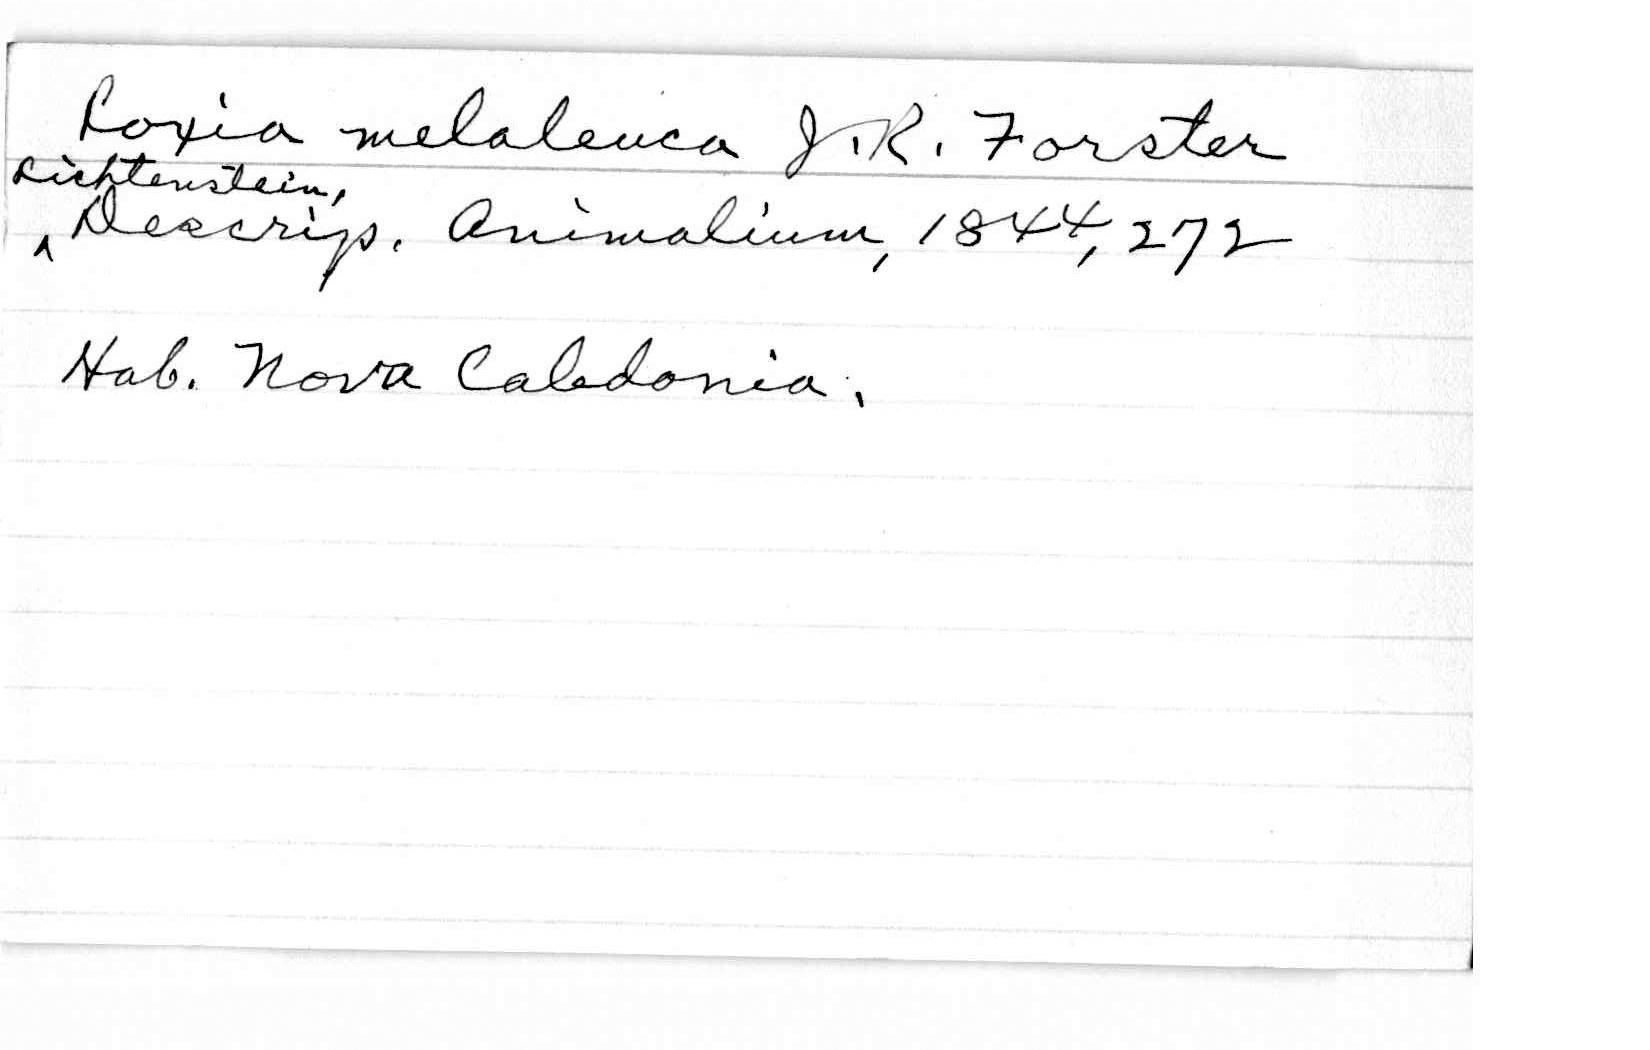 Loxia melaleuca J. R. Forster
Lichtenstein,
^ Descrip. Animalium, 1844, 272
Hab. Nova Caledonia.